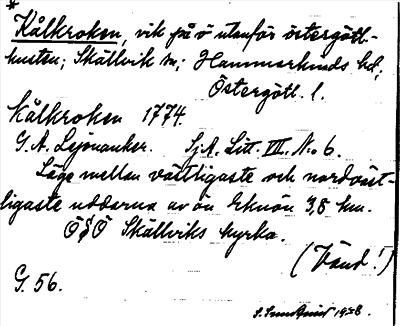 *
Kålkroken, vik på ö utanför östergötl.-
kusten; Skällvik sn; Hammarkinds hd;
Östergötl. l.
Kålkroken 1774.
G. A. Lejonanker. SjA. Litt. III. No 6.
Läge mellan västligaste och nordväst-
ligaste uddarna av ön Eknön 3,8 km.
ÖSÖ Skällviks kyrka.
(Vänd!)
G. 56.
S. Sundquist 1938.